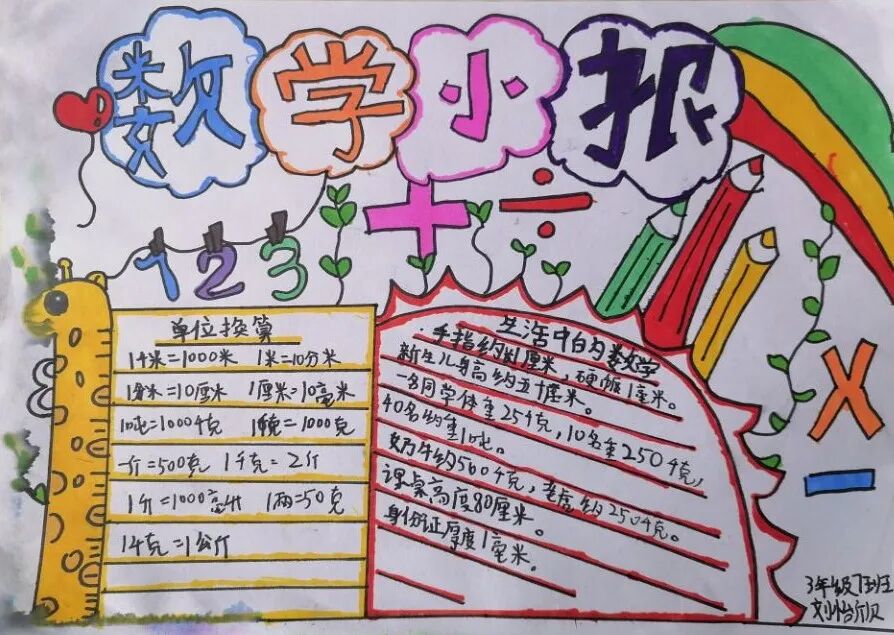 数学小报
1 2 3
+ ÷
× −
单位换算
1千米=1000米 1米=10分米
1分米=10厘米 1厘米=10毫米
1吨=1000千克 1千克=1000克
一斤=500克 1千克=2斤
1升=1000毫升 1两=50克
1千克=1公斤
生活中的数学
手指约1厘米,硬币1毫米。
新生儿身高约五十厘米。
一名同学体重25千克,10名重250千克,
40名约重1吨。
奶牛约560千克,老虎约250千克。
课桌高度80厘米。
身份证厚度1毫米。
3年级7班